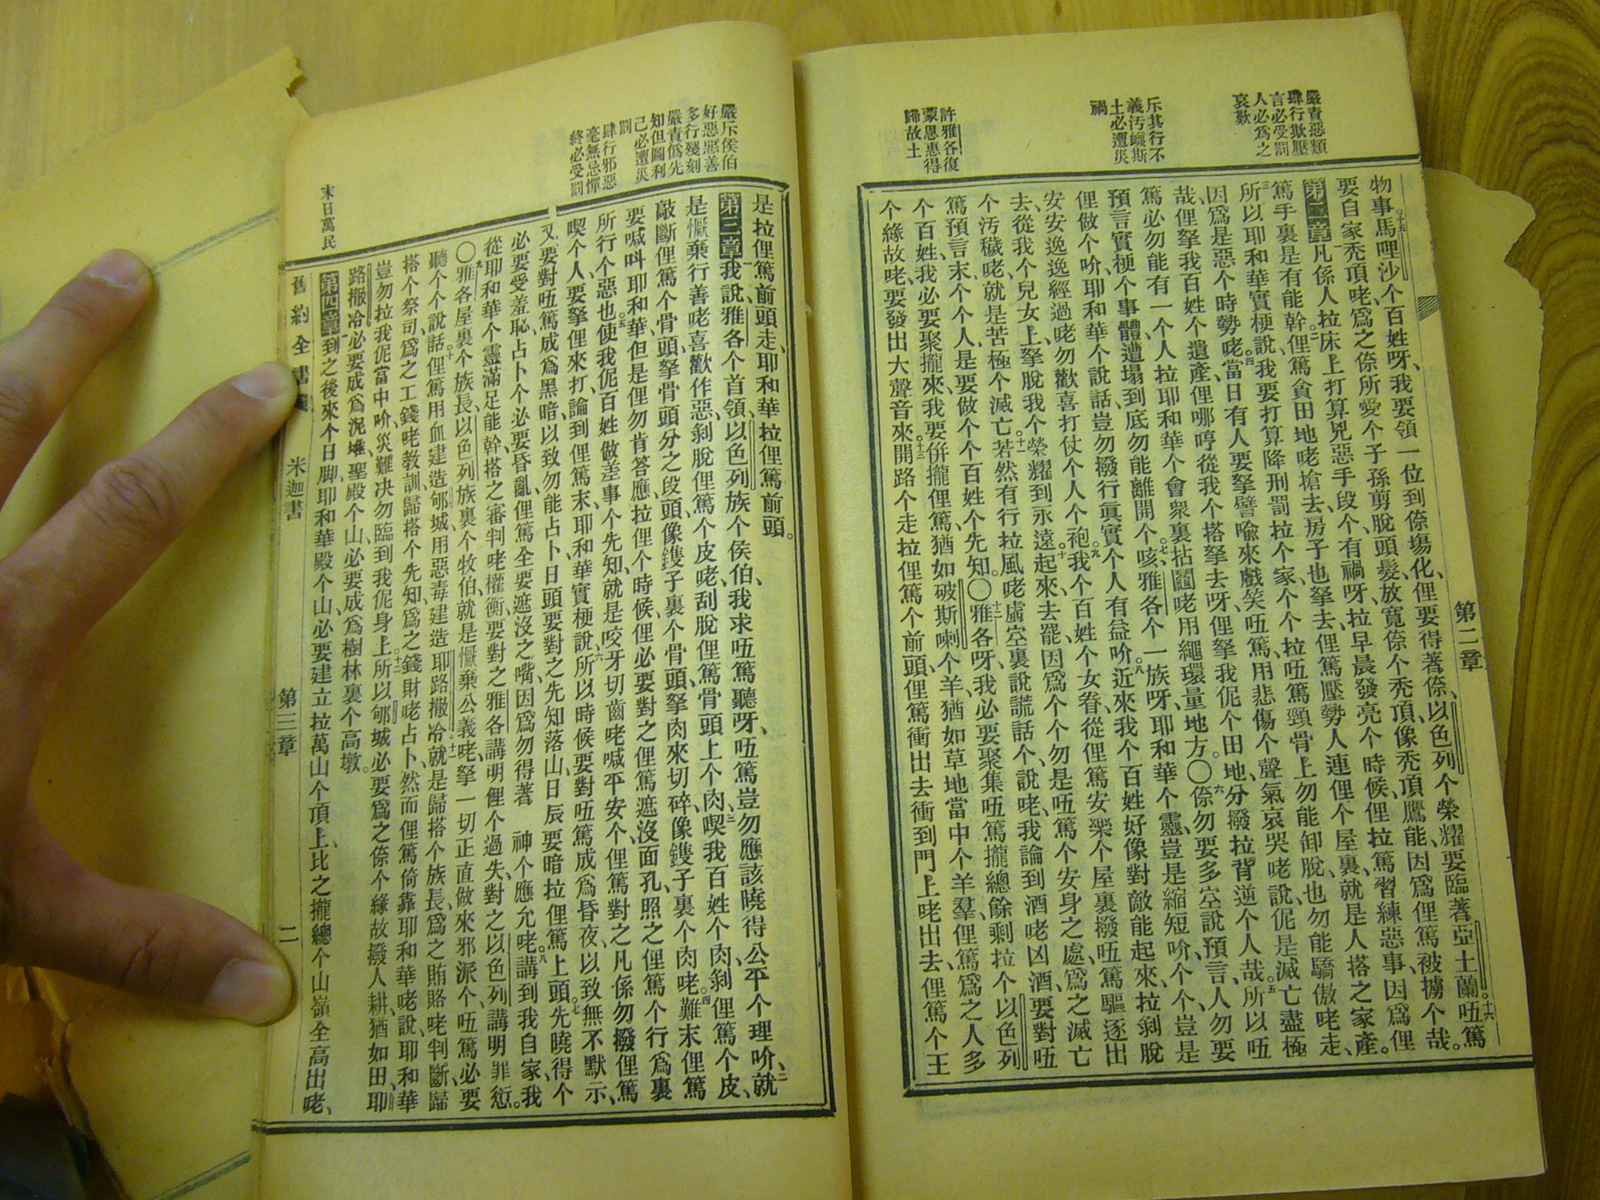 嚴責惡類
肆行欺壓
言必受罰
人必爲之
哀歎
斥其行不
義汚衊斯
土必遭災
禍
許雅各復
蒙恩惠得
歸故土
第二章
物事、十五馬哩沙个百姓呀、我要領一位到倷塲化、俚要得著倷、以色列个榮耀、要臨著亞土蘭。十六𠵽篤
要自家禿頂咾、爲之倷所愛个子孫剪脫頭髮、放寬倷个禿頂、像禿頂鷹能、因爲俚篤被擄个哉。
第二章 一凡係人拉床上打算兇惡手段个、有禍呀、拉早晨發亮个時候、俚拉篤習練惡事、因爲俚
篤手裏是有能幹。二俚篤貪田地咾搶去、房子也拏去、俚篤壓勢人連俚个屋裏、就是人搭之家產。
三所以耶和華實梗說、我要打算降刑罰拉个家、个个拉𠵽篤頸骨上勿能卸脫、也勿能驕傲咾走、
因爲是惡个時勢咾。四當日有人要拏譬喻來戲笑𠵽篤、用悲傷个聲氣哀哭咾說、伲是滅亡盡極
哉、俚拏我百姓个遺產、俚哪哼從我个搭拏去呀、俚拏我伲个田地、分撥拉背逆个人哉。五所以𠵽
篤必勿能有一个人、拉耶和華个會衆裏拈鬮咾用繩環量地方。〇六倷勿要多空說預言、人勿要
預言實梗个事體、遭塌到底勿能離開个。七咳、雅各个一族呀、耶和華个靈、豈是縮短吤个、个豈是
俚做个吤、耶和華个說話、豈勿撥行眞實个人有益吤。八近來我个百姓好像對敵能起來、拉剝脫
安安逸逸經過咾勿歡喜打仗个人个袍。九我个百姓个女眷、從俚篤安樂个屋裏撥𠵽篤驅逐出
去、從我个兒女上、拏脫我个榮耀到永遠。十起來去罷、因爲个个勿是𠵽篤个安身之處、爲之滅亡
个汚穢咾、就是苦極个滅亡。十一若然有行拉風咾虛空裏說謊話个說咾、我論到酒咾凶酒、要對𠵽
篤預言末、个个人是要做个个百姓个先知。〇十二雅各呀、我必要聚集𠵽篤攏總、餘剩拉个以色列
个百姓、我必要聚攏來、我要併攏俚篤、猶如破斯喇个羊、猶如草地當中个羊羣、俚篤爲之人多
个緣故咾、要發出大聲音來。十三開路个走拉俚篤个前頭、俚篤衝出去、衝到門上咾出去、俚篤个王
嚴斥侯伯
好惡惡善
多行殘刻
嚴責僞先
知但圖利
己必遭災
罰
肆行邪惡
毫無忌憚
終必受罰
末日萬民
是拉俚篤前頭走、耶和華拉俚篤前頭。
第三章 一我說、雅各个首領、以色列族个侯伯、我求𠵽篤聽呀、𠵽篤豈勿應該曉得公平个理吤。二就
是懨棄行善咾喜歡作惡、剝脫俚篤个皮咾、刮脫俚篤骨頭上个肉。三喫我百姓个肉、剝俚篤个皮、
敲斷俚篤个骨頭、拏骨頭分之段頭、像鑊子裏个骨頭、拏肉來切碎、像鑊子裏个肉咾。四難末俚篤
要喊叫耶和華、但是俚勿肯答應、拉俚个時候、俚必要對之俚篤遮沒面孔、照之俚篤个行爲裏
所行个惡。五也使我伲百姓做差事个先知、就是咬牙切齒咾喊平安个、俚篤對之凡係勿撥俚篤
喫个人、要拏俚來打、論到俚篤末、耶和華實梗說。六所以時候要對𠵽篤成爲昏夜、以致無不默示、
又要對𠵽篤成爲黑暗、以致勿能占卜、日頭要對之先知落山、日辰要暗拉俚篤上頭。七先曉得个
必要受羞恥、占卜个必要昏亂、俚篤全要遮沒之嘴、因爲勿得著　神个應允咾。八講到我自家、我
從耶和華个靈、滿足能幹、搭之審判咾權衡、要對之雅各講明俚个過失、對之以色列講明罪愆。
〇九雅各屋裏个族長、以色列族裏个牧伯、就是懨棄公義咾、拏一切正直做來邪派个、𠵽篤必要
聽个个說話。十俚篤用血建造郇城、用惡毒建造耶路撒冷。十一就是歸搭个族長、爲之賄賂咾判斷、歸
搭个祭司、爲之工錢咾教訓、歸搭个先知、爲之錢財咾占卜、然而俚篤倚靠耶和華咾說、耶和華
豈勿拉我伲當中吤、災難決勿臨到我伲身上。十二所以郇城必要爲之倷个緣故、撥人耕猶如田、耶
路撒冷必要成爲泥堆、聖殿个山、必要成爲樹林裏个高墩。
第四章 一到之後來个日脚、耶和華殿个山、必要建立拉萬山个頂上、比之攏總个山嶺全高出咾、
舊約全書
米迦書
第三章
二